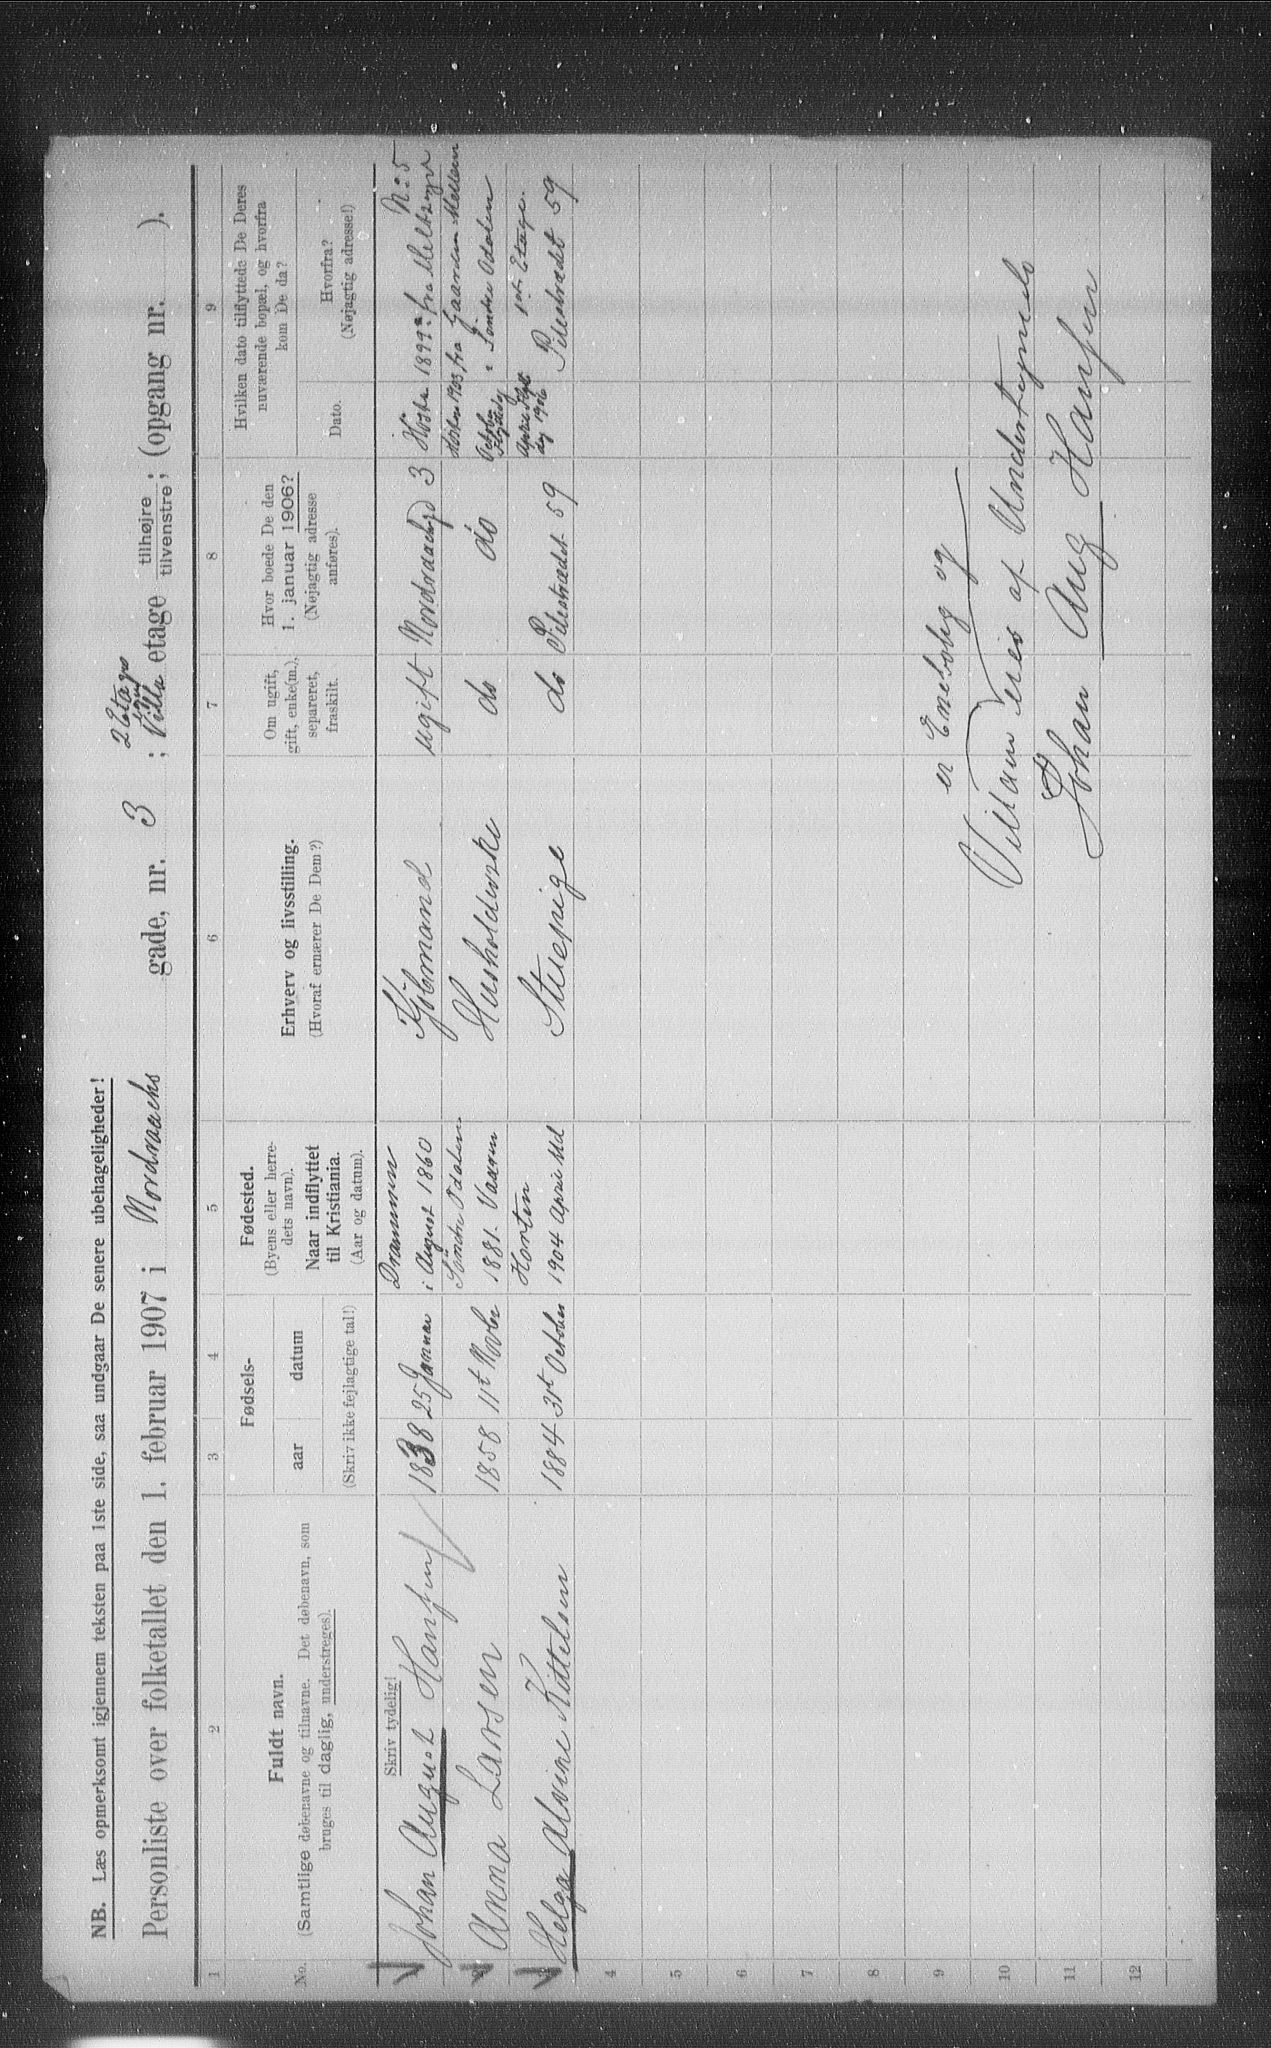 NB. Læs opmerksomt igjennem teksten paa 1ste side, saa undgaar De senere ubehageligheder!
Personliste over folketallet den 1. februar 1907 i Nordraachs gade, nr. 3 ; Villa etage tilhøjre tilvenstre; (opgang nr. ).
2 Etages
1 2 3 4 5 6 7 8 9
No.
Fuldt navn.
(Samtlige døbenavne og tilnavne. Det døbenavn, som
bruges til daglig, understreges).
Fødsels-
aar datum
(Skriv ikke fejlagtige tal!)
Fødested.
(Byens eller herre-
dets navn).
Naar indflyttet
til Kristiania.
(Aar og datum).
Erhverv og livsstilling.
(Hvoraf ernærer De Dem?)
Om ugift,
gift, enke(m.),
separeret,
fraskilt.
Hvor boede De den
1. januar 1906?
(Nøjagtig adresse
anføres).
Hvilken dato tilflyttede De Deres
nuværende bopæl, og hvorfra
kom De da?
Dato.
Hvorfra?
(Nøjagtig adresse!)
Skriv tydelig!
Johan August Hansen 1838 25 Januar Drammen
i August 1860 Kjöbmand ugift Nordraachsgd 3 Hösten 1899 fra Meltzersgd No: 5
Anna Larsen 1858 11t Novbr Söndre Odalen
1881. Vaaren Husholderske do do
Hösten 1903, fra Gaarden Mellem
October Flyttedag i Söndre Odalen
Helga Alvine Kittelsen 1884 31t October Horten
1904 April Md Stuepige do Pilestrædet 59 April Flyt
dag 1906 1ste Etage.
Pilestrædet 59
4
5
6
7
8
9
10
11
12
er Enebolig og
Villaen eies af Undertegnede
Johan Aug Hansen